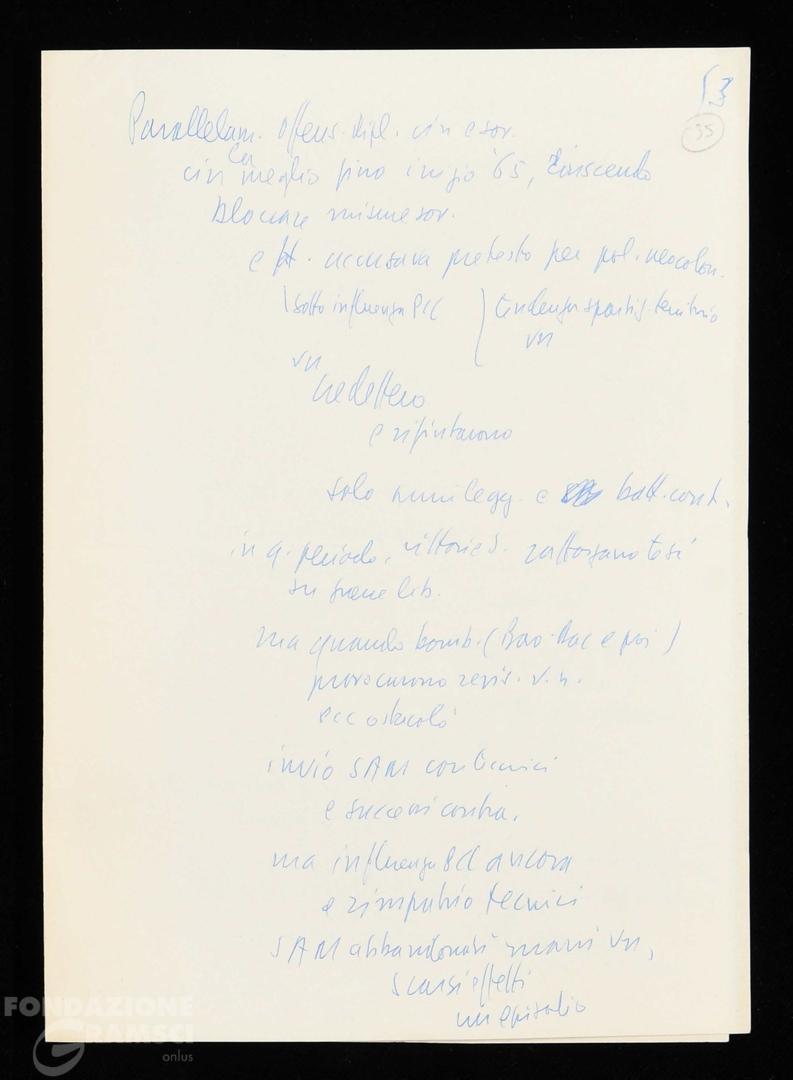 53
35
Parallelam. Offens. dipl. cin e sov.
cin meglio fino iugio '65,
bloccare misure sov.
e accusava pretesto per pol. neocolon.
sotto influenza PCC
tendenza spartiz. territorio
vn
vn
cedettero
e rifiutarono
solo armi legg. e batt. cont.
in q. periodo, vittorie S. rafforzano tesi
su
ma quando bomb. (Bao-Bac e poi)
provocarono revis. v.n.
PCC ostacolò
invio SAM con tecnici
e successi contra.
ma influenza PCC ancora
e rimpatrio tecnici
SAM abbandonati mani vn,
scarsi effetti
un episodio
FONDAZIONE
GRAMSCI
onlus